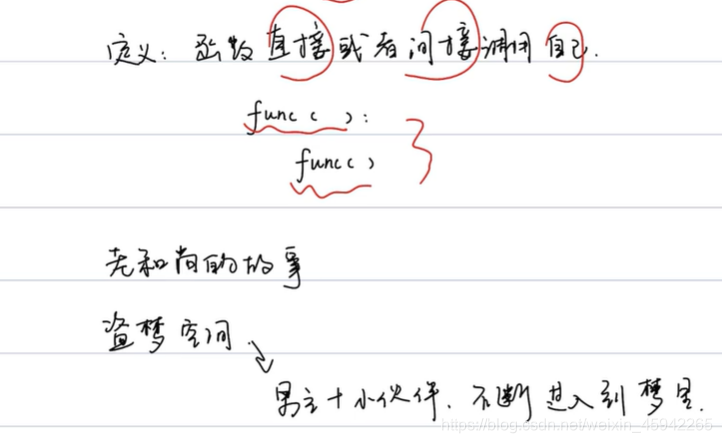 定义：函数直接或者间接调用自己.
func():
func()
老和尚的故事
盗梦空间
男主+小伙伴.不断进入到梦里.
https://blog.csdn.net/weixin_45942265